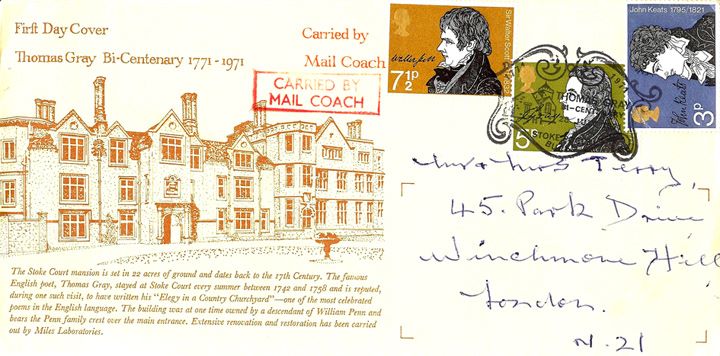 First Day Cover
Thomas Gray Bi-Centenary 1771-1971
Carried by
Mail Coach
CARRIED BY
MAIL COACH
Sir Walter Scott
7½p
John Keats 1795/1821
John Keats
3p
5
1971
THOMAS GRAY
BI-CENTENARY
STOKE
The Stoke Court mansion is set in 22 acres of ground and dates back to the 17th Century. The famous
English poet, Thomas Gray, stayed at Stoke Court every summer between 1742 and 1758 and is reputed,
during one such visit, to have written his "Elegy in a Country Churchyard"—one of the most celebrated
poems in the English language. The building was at one time owned by a descendant of William Penn and
bears the Penn family crest over the main entrance. Extensive renovation and restoration has been carried
out by Miles Laboratories.
Mr & Mrs Terry,
45. Park Drive
Winchmore Hill
London.
N. 21